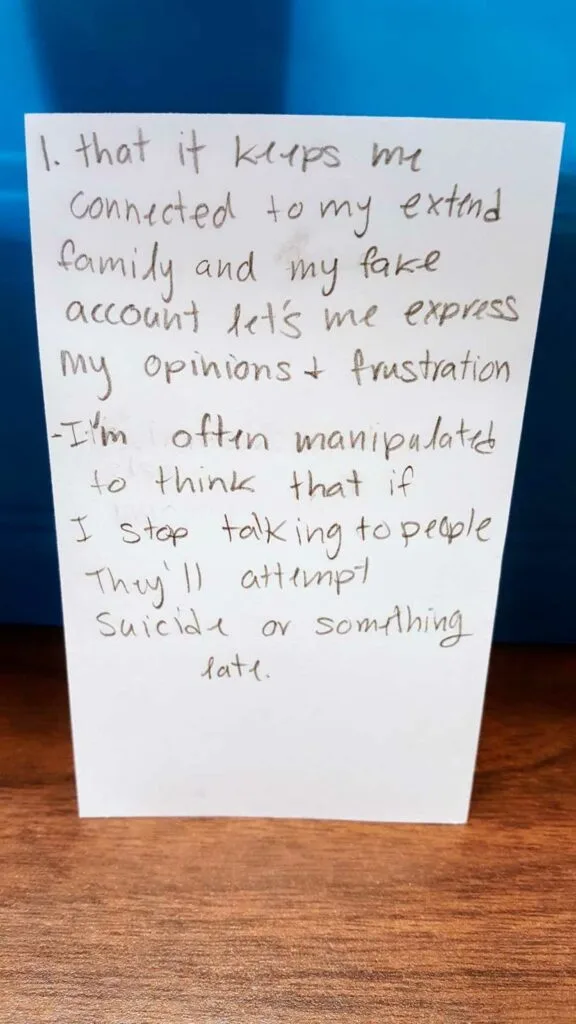 1. that it keeps me
connected to my extend
family and my fake
account let's me express
my opinions + frustration
-I'm often manipulated
to think that if
I stop talking to people
They'll attempt
suicide or something
late.